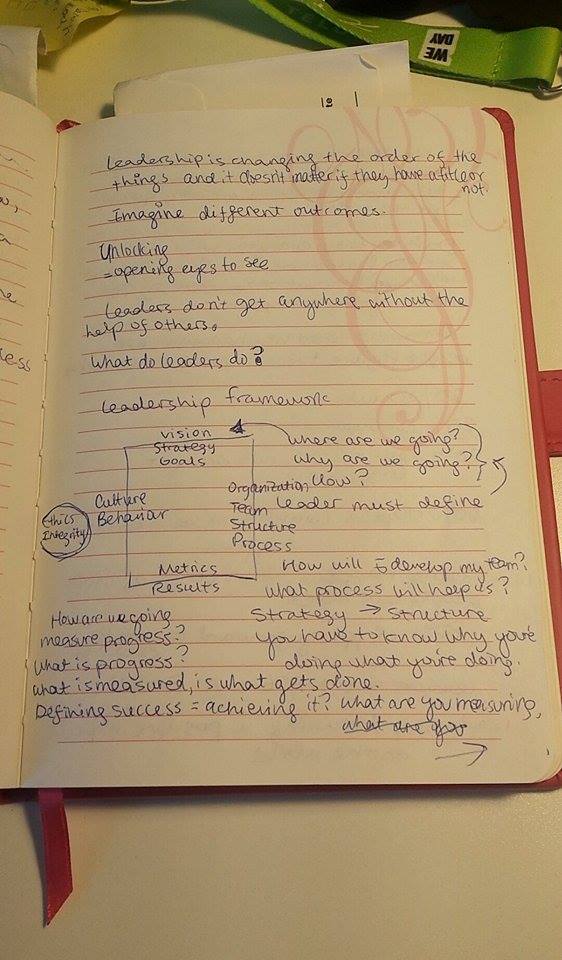 WE
DAY
Leadership is changing the order of the
things and it doesn't matter if they have a title or
not.
Imagine different outcomes.
Unlocking
= opening eyes to see
Leaders don't get anywhere without the
help of others.
What do leaders do?
Leadership framework
Vision
Strategy
Goals
Where are we going?
Why are we going?
How?
Leader must define
Culture
Behaviour
Ethics
Integrity
Organization
Team
Structure
Process
Metrics
Results
How will I develop my team?
What process will help us?
Strategy → Structure
You have to know why you're
doing what you're doing.
How are we going
measure progress?
What is progress?
What is measured, is what gets done.
Defining success = achieving it? What are you measuring,
what are you